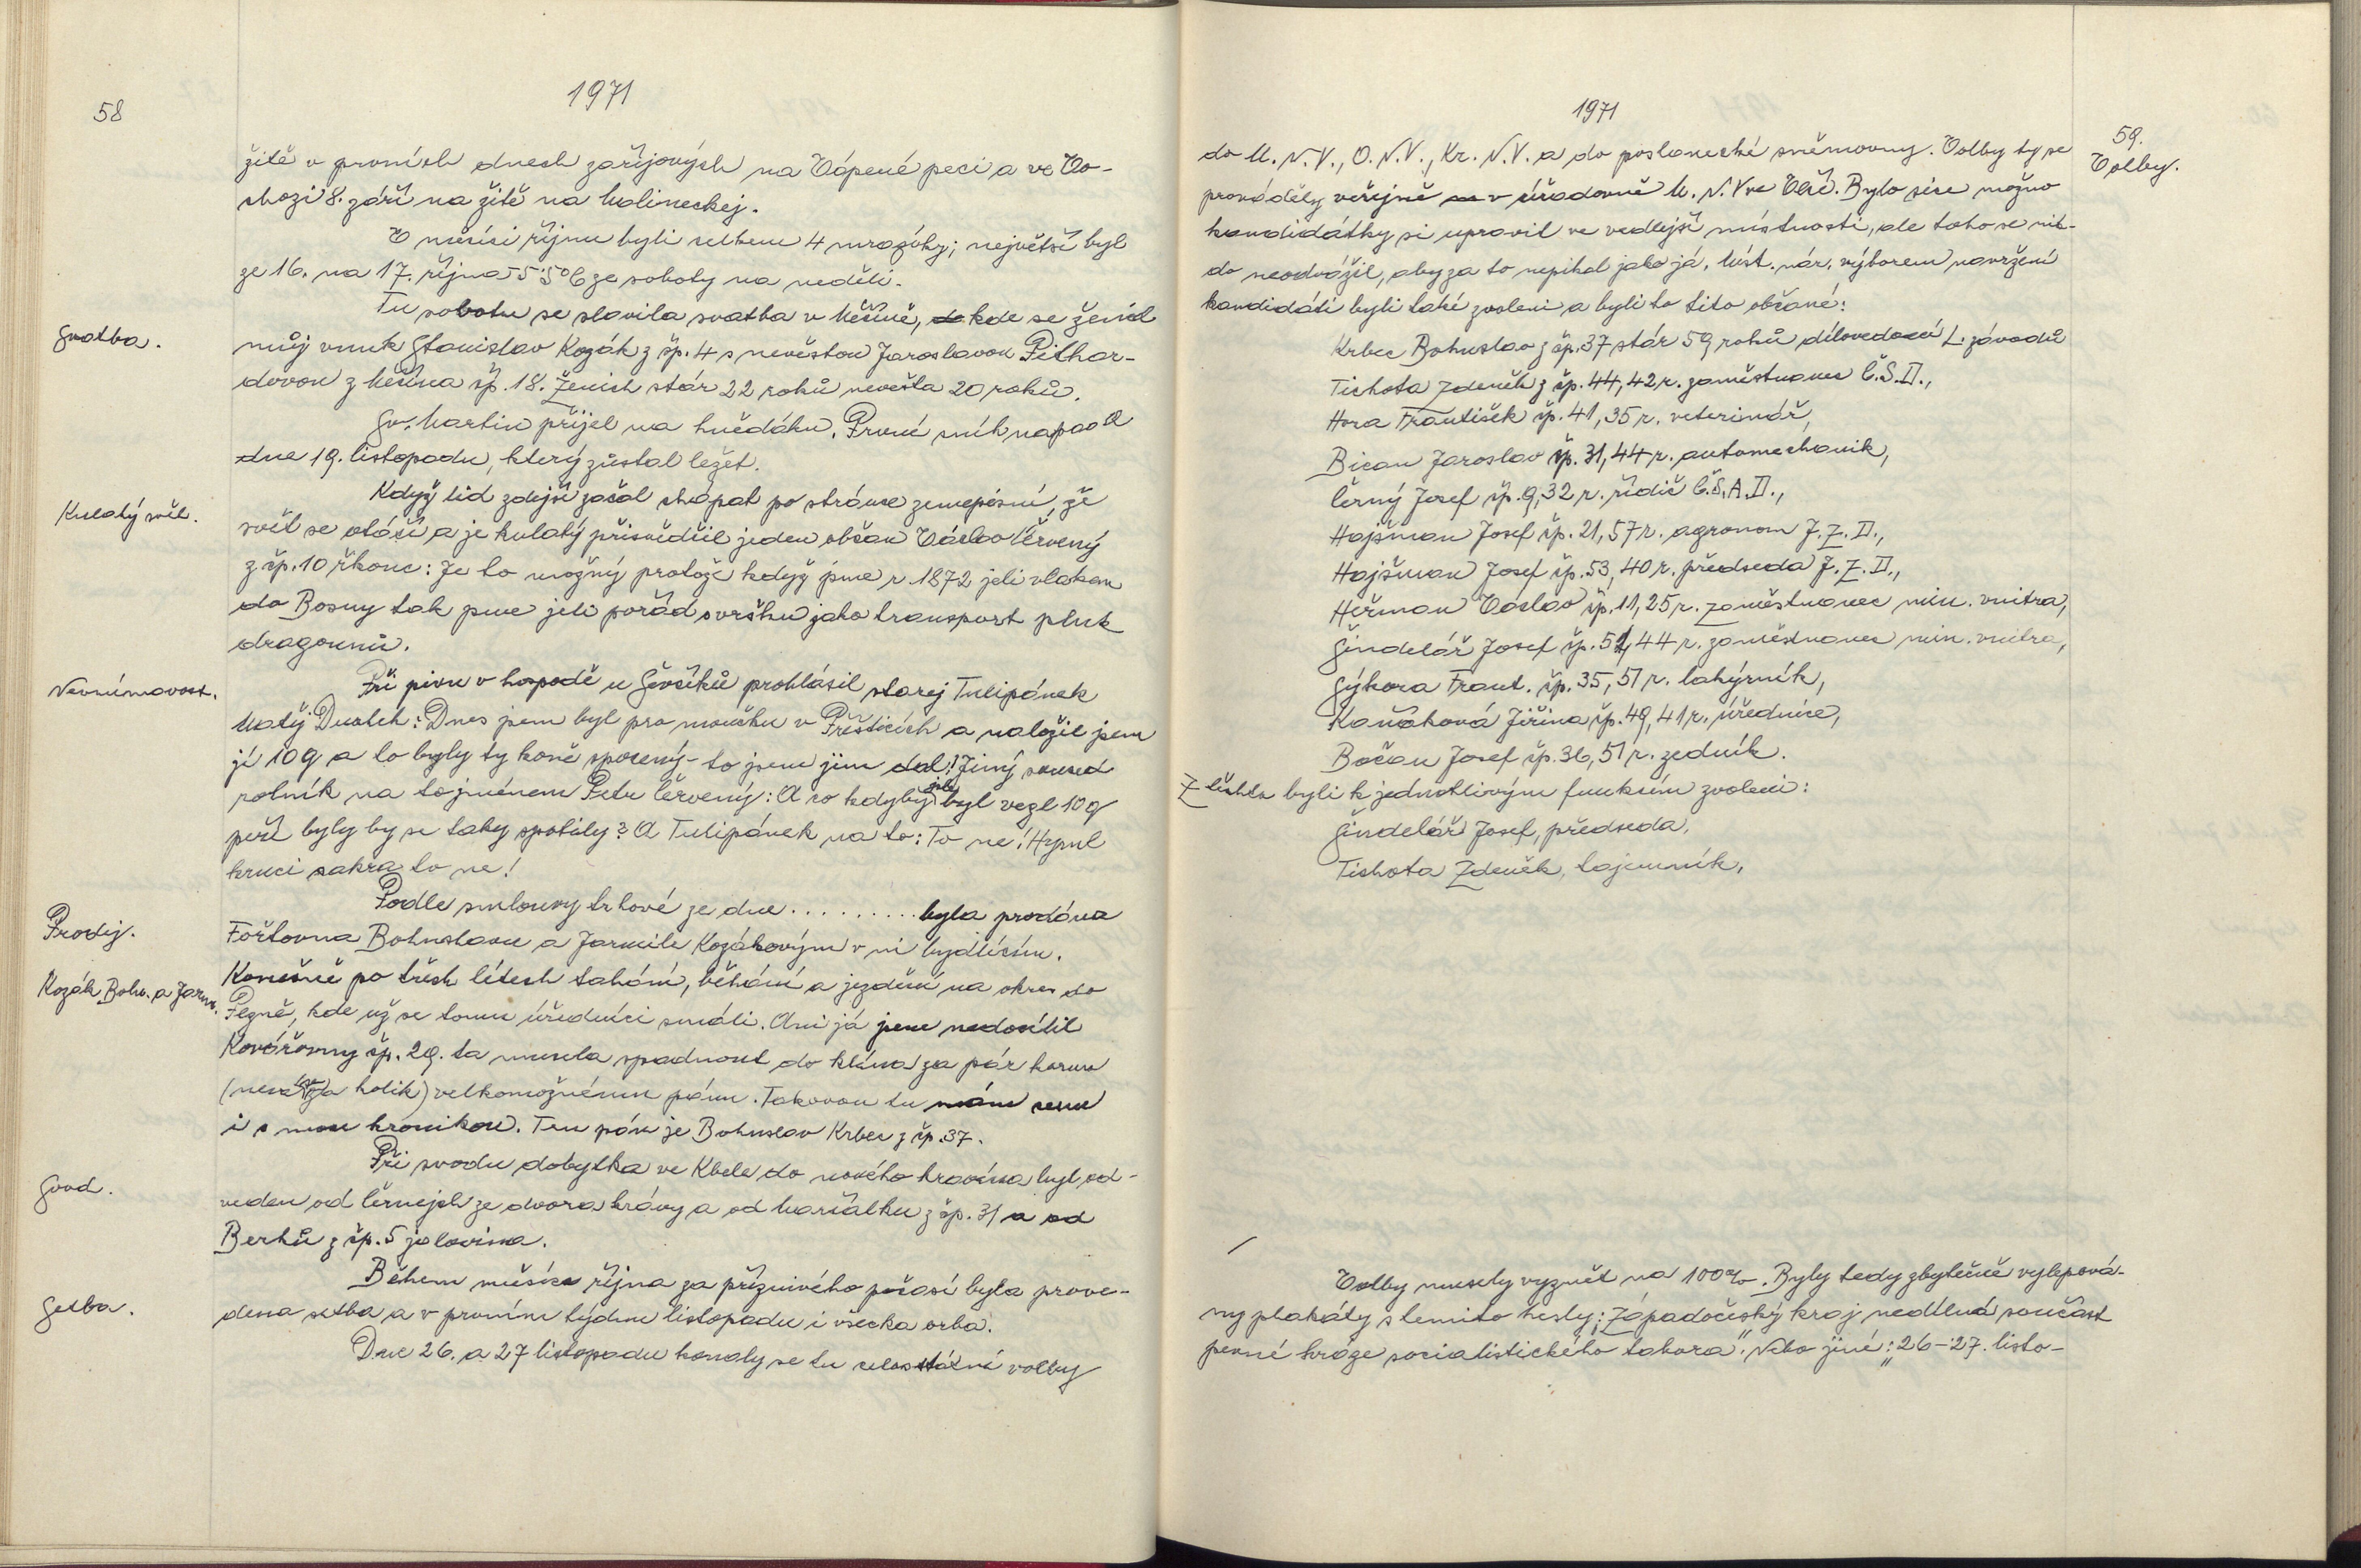 58
1971
žitě v prvních dnech zářijových na Vápené peci a ve Vo-
chozi 8. září na žitě na Malineckej.
V měsíci říjnu byli celkem 4 mrazíky; největší byl
ze 16. na 17. října -5·5°C ze soboty na neděli.
Tu sobotu se slavila svatba v Měčíně, kde se ženil
Svatba.
můj vnuk Stanislav Kozák z čp. 4 s nevěstou Jaroslavou Pithar-
dovou z Měčína čp. 18. Ženich stár 22 roků nevěsta 20 roků.
Sv. Martin přijel na hnědáku. První sníh napadl
dne 19. listopadu, který zůstal ležet.
Když lid zdejší začal chápat po stránce zeměpisní, že
Kulatý svět.
svět se otáčí a je kulatý přisvědčil jeden občan Václav Červený
z čp. 10 řkouc: Je to možný protože když jsme r. 1872 jeli vlakem
do Bosny tak jsme jeli pořád svršku jako transport pluk
dragounů.
Při pivu v hospodě u Ševčíků prohlásil starej Tulipánek
Nevnímavost.
Matěj Duchek: Dnes jsem byl pro moučku v Přešticích a naložil jsem
jí 10 q a to byly ty koně spocený - to jsem jim dal! Jiný soused
rolník na to jménem Petr Červený: A co kdybys byl vezl 10 q
peří byly by se taky spotily? A Tulipánek na to: To ne! Hzpul
kruci sakra to ne!
Podle smlouvy trhové ze dne ......... byla prodána
Prodej.
Fořtovna Bohuslavu a Jarmile Kozákovým v ní bydlícím.
Kozák Boh. a Jarm.
Konečně po třech létech tahání, běhání a jezdění na okres do
Plzně, kde už se tomu úředníci smáli. Ani já jsem nedocílil
Kovářovny čp. 29. ta musela spadnout do klína za pár korun
(nevím za kolik) velkomožnému pánu. Takovou tu mám cenu
i s mou kronikou. Ten pán je Bohuslav Krbec z čp. 37.
Při svodu dobytka ve Kbele do nového kravína byl od-
Svod.
veden od Černejch ze dvora krávy a od Maršálků z čp. 31 a od
Berků z čp. 5 jalovina.
Během měsíce října za příznivého počasí byla prove-
Setba.
dena setba a v prvním týdnu listopadu i všecka orba.
Dne 26. a 27 listopadu konaly se tu celostátní volby
1971
59.
Volby.
do M. N. V., O. N. V., Kr. N. V. a do poslanecké sněmovny. Volby ty se
prováděly veřejně v úřadovně M. N. V ve Vlčí. Bylo sice možno
kandidátky si upravit ve vedlejší místnosti, ale toho se nik-
do neodvážil, aby za to nepikal jako já. Míst. nár. výborem navržení
kandidáti byli také zvoleni a byli to tito občané:
Krbec Bohuslav z čp. 37 stár 59 roků dílovedoucí L. závodů
Tichota Zdeněk z čp. 44, 42 r. zaměstnanec Č.S.D.,
Hora František čp. 41, 35 r. veterinář,
Bican Jaroslav čp. 31, 44 r. automechanik,
Černý Josef čp. 9, 32 r. řidič Č.S.A.D.,
Hajšman Josef čp. 21, 57 r. agronom J. Z. D.,
Hajšman Josef čp. 53, 40 r. předseda J. Z. D.,
Heřman Václav čp. 11, 25 r. zaměstnanec min. vnitra,
Šindelář Josef čp. 51, 44 r. zaměstnanec min. vnitra,
Sýkora Frant. čp. 35, 51 r. lahýrník,
Kaňáková Jiřina čp. 49, 41 r. úřednice,
Bočan Josef čp. 36, 51 r. zedník.
Z těchto byli k jednotlivým funkcím zvoleni:
Šindelář Josef, předseda,
Tichota Zdeněk, tajemník,
Volby musely vyznět na 100%. Byly tedy zbytečně vylepová-
ny plakáty s temito hesly: „Západočeský kraj nedílná součást
pevné hráze socialistického tábora". Nebo jiné: „26-27. listo-